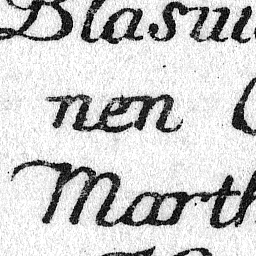 Blasui
nen
Marth